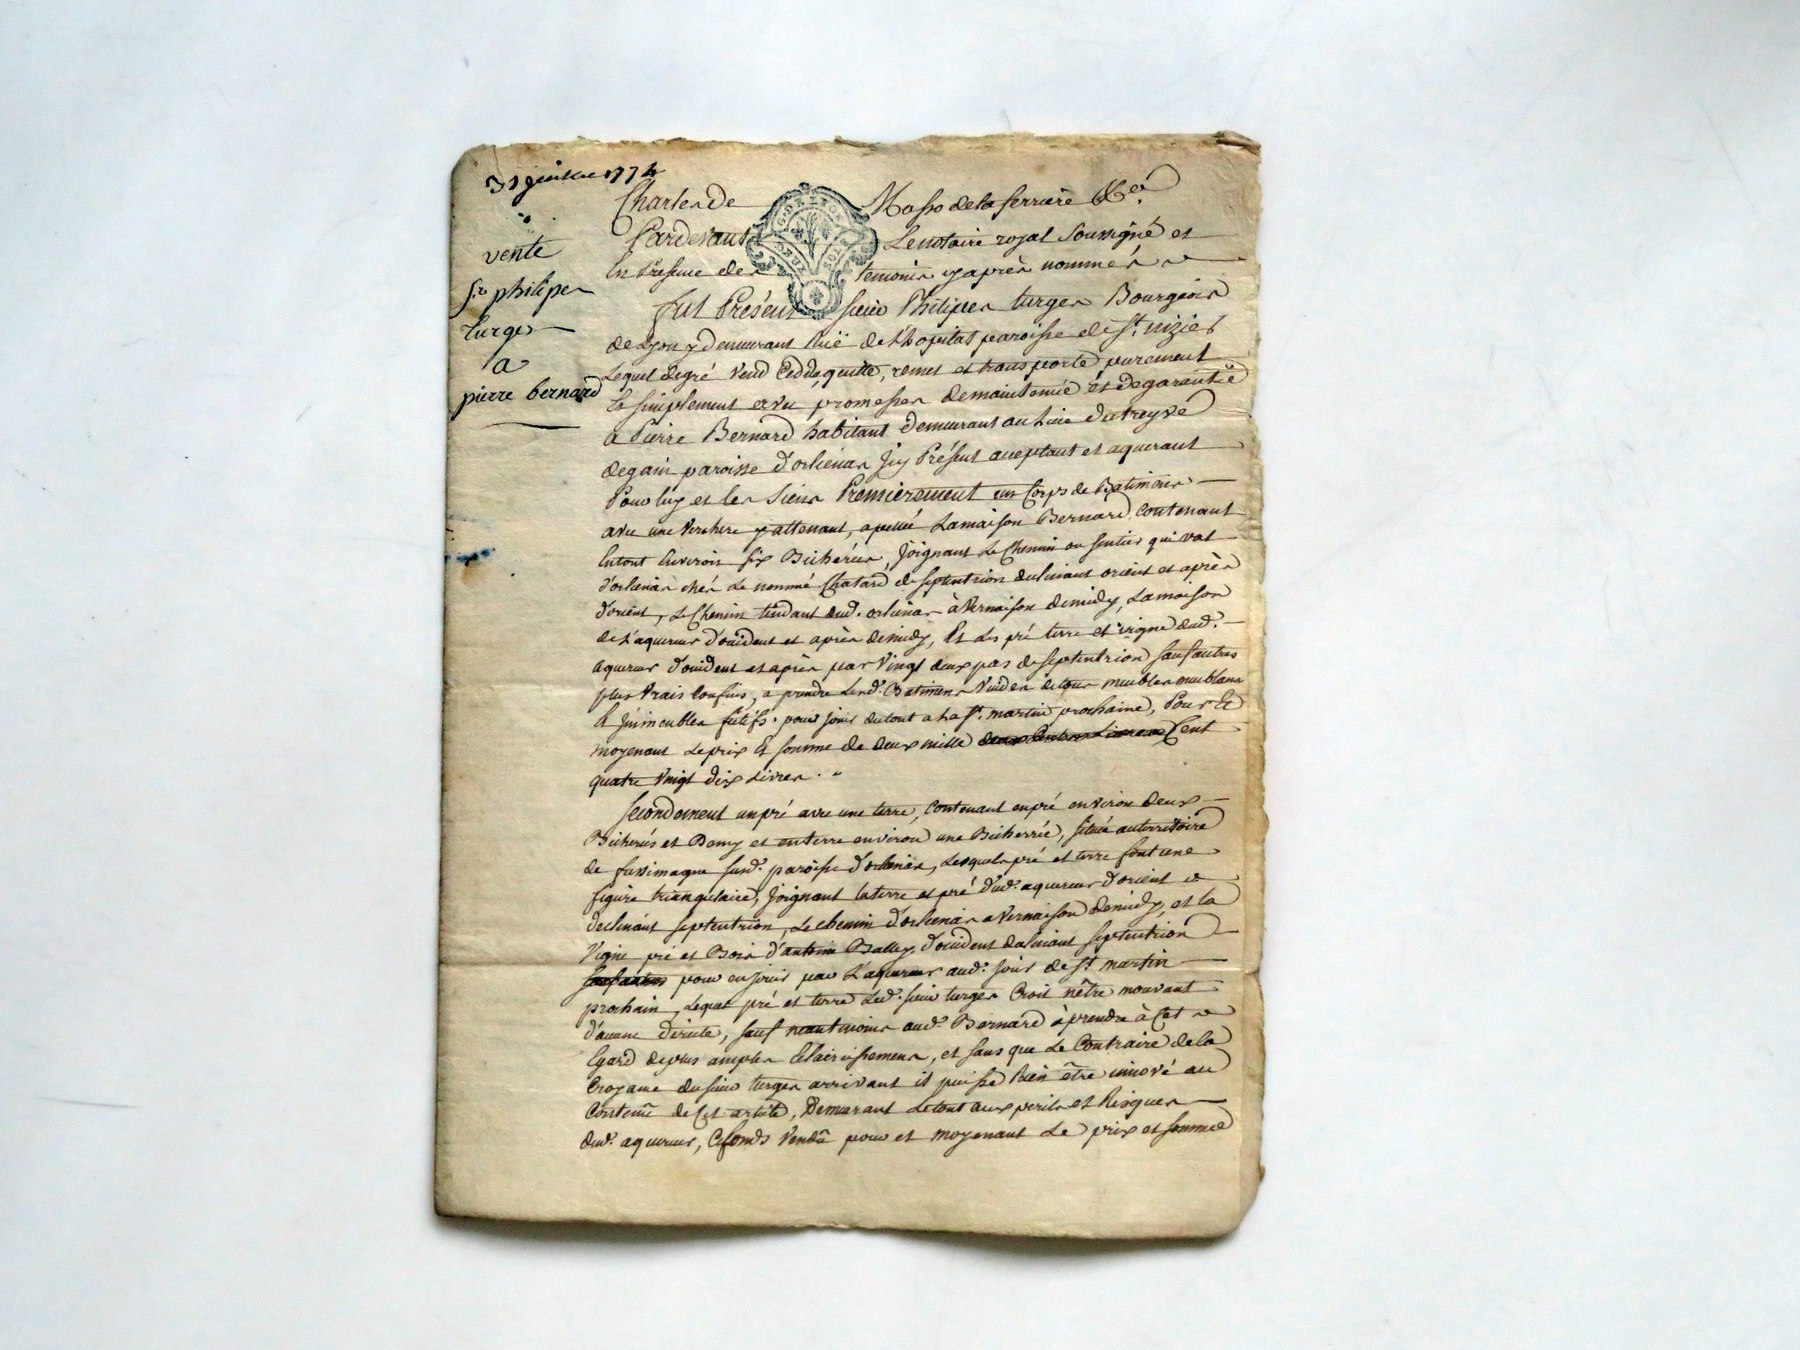 1774
vente
Sr philipes
turges
a
pierre bernard
Charles de Masso de la ferriere &ca
Pardevant Le notaire royal Soussigné et
En Presence des temoins cy après nommés
fut Présent sieur Philipes turges Bourgeois
de Lyon y demeurant Rüe de L'hopital paroisse de St. nizier
Lequel de gré vend Cedde quitte, remet et transporte purement
Et simplement avec promesses de maintenüe et de garantië
a Pierre Bernard habitant demeurant au Lieu du treyve
de gain paroisse d'orliénas Icy Présent acceptant et aquerant
Pour luy et les Siens Premierement un Corps de Batimens
avec une Verchere y attenant, apellée La maison Bernard contenant
En tout Environ six Bicherées, Joignant Le Chemin ou sentier qui vat
d'orliénas chés Le nommé Chatard de septentrion declinant orient et après
d'orient, Le Chemin tendant dud. orliénas à Vernaison de midy, La maison
de L'aquereur d'occident et après de midy, Et Les pré terre et vigne dud.
aquereur d'occident et après par Vingt deux pas de septentrion sauf autres
plus vrais Confins, a prendre Lesd. Batimens Vuides de tous meubles meublans
Et Jmmeubles fictifs pour jouir du tout a La St. martin prochaine, Pour Et
moyenant Le prix Et somme de deux mille Cent
quatre Vingt dix Livres
Secondement un pré avec une terre, Contenant en pré environ deux
Bicherées et Demy et en terre environ une Bicherrée, située au territoire
de sur lad. paroisse d'orliénas, Lesquels pré et terre font une
figure triangulaire, Joignant la terre et pré dud. aquereur d'orient
declinant septentrion, Le chemin d'orliénas a Vernaison de midy, et la
Vigne pré et Bois d'antoine Bally d'occident declinant septentrion
pour en jouir par L'aquereur aud. jour de St. martin
prochain, Lequel pré et terre Led. sieur turges Croit n'être mouvant
d'aucune directe, sauf neantmoins aud. Bernard à prendre à Cet
Egard de plus amples Eclaircissemens, et sans que Le Contraire de la
Croyance du sieur turges arrivant il puisse Rien être innové au
Contenu de Cet article, Demeurant Le tout aux perils et Risques
dud. aquereur, Ce fonds Vendû pour et moyenant Le prix et somme